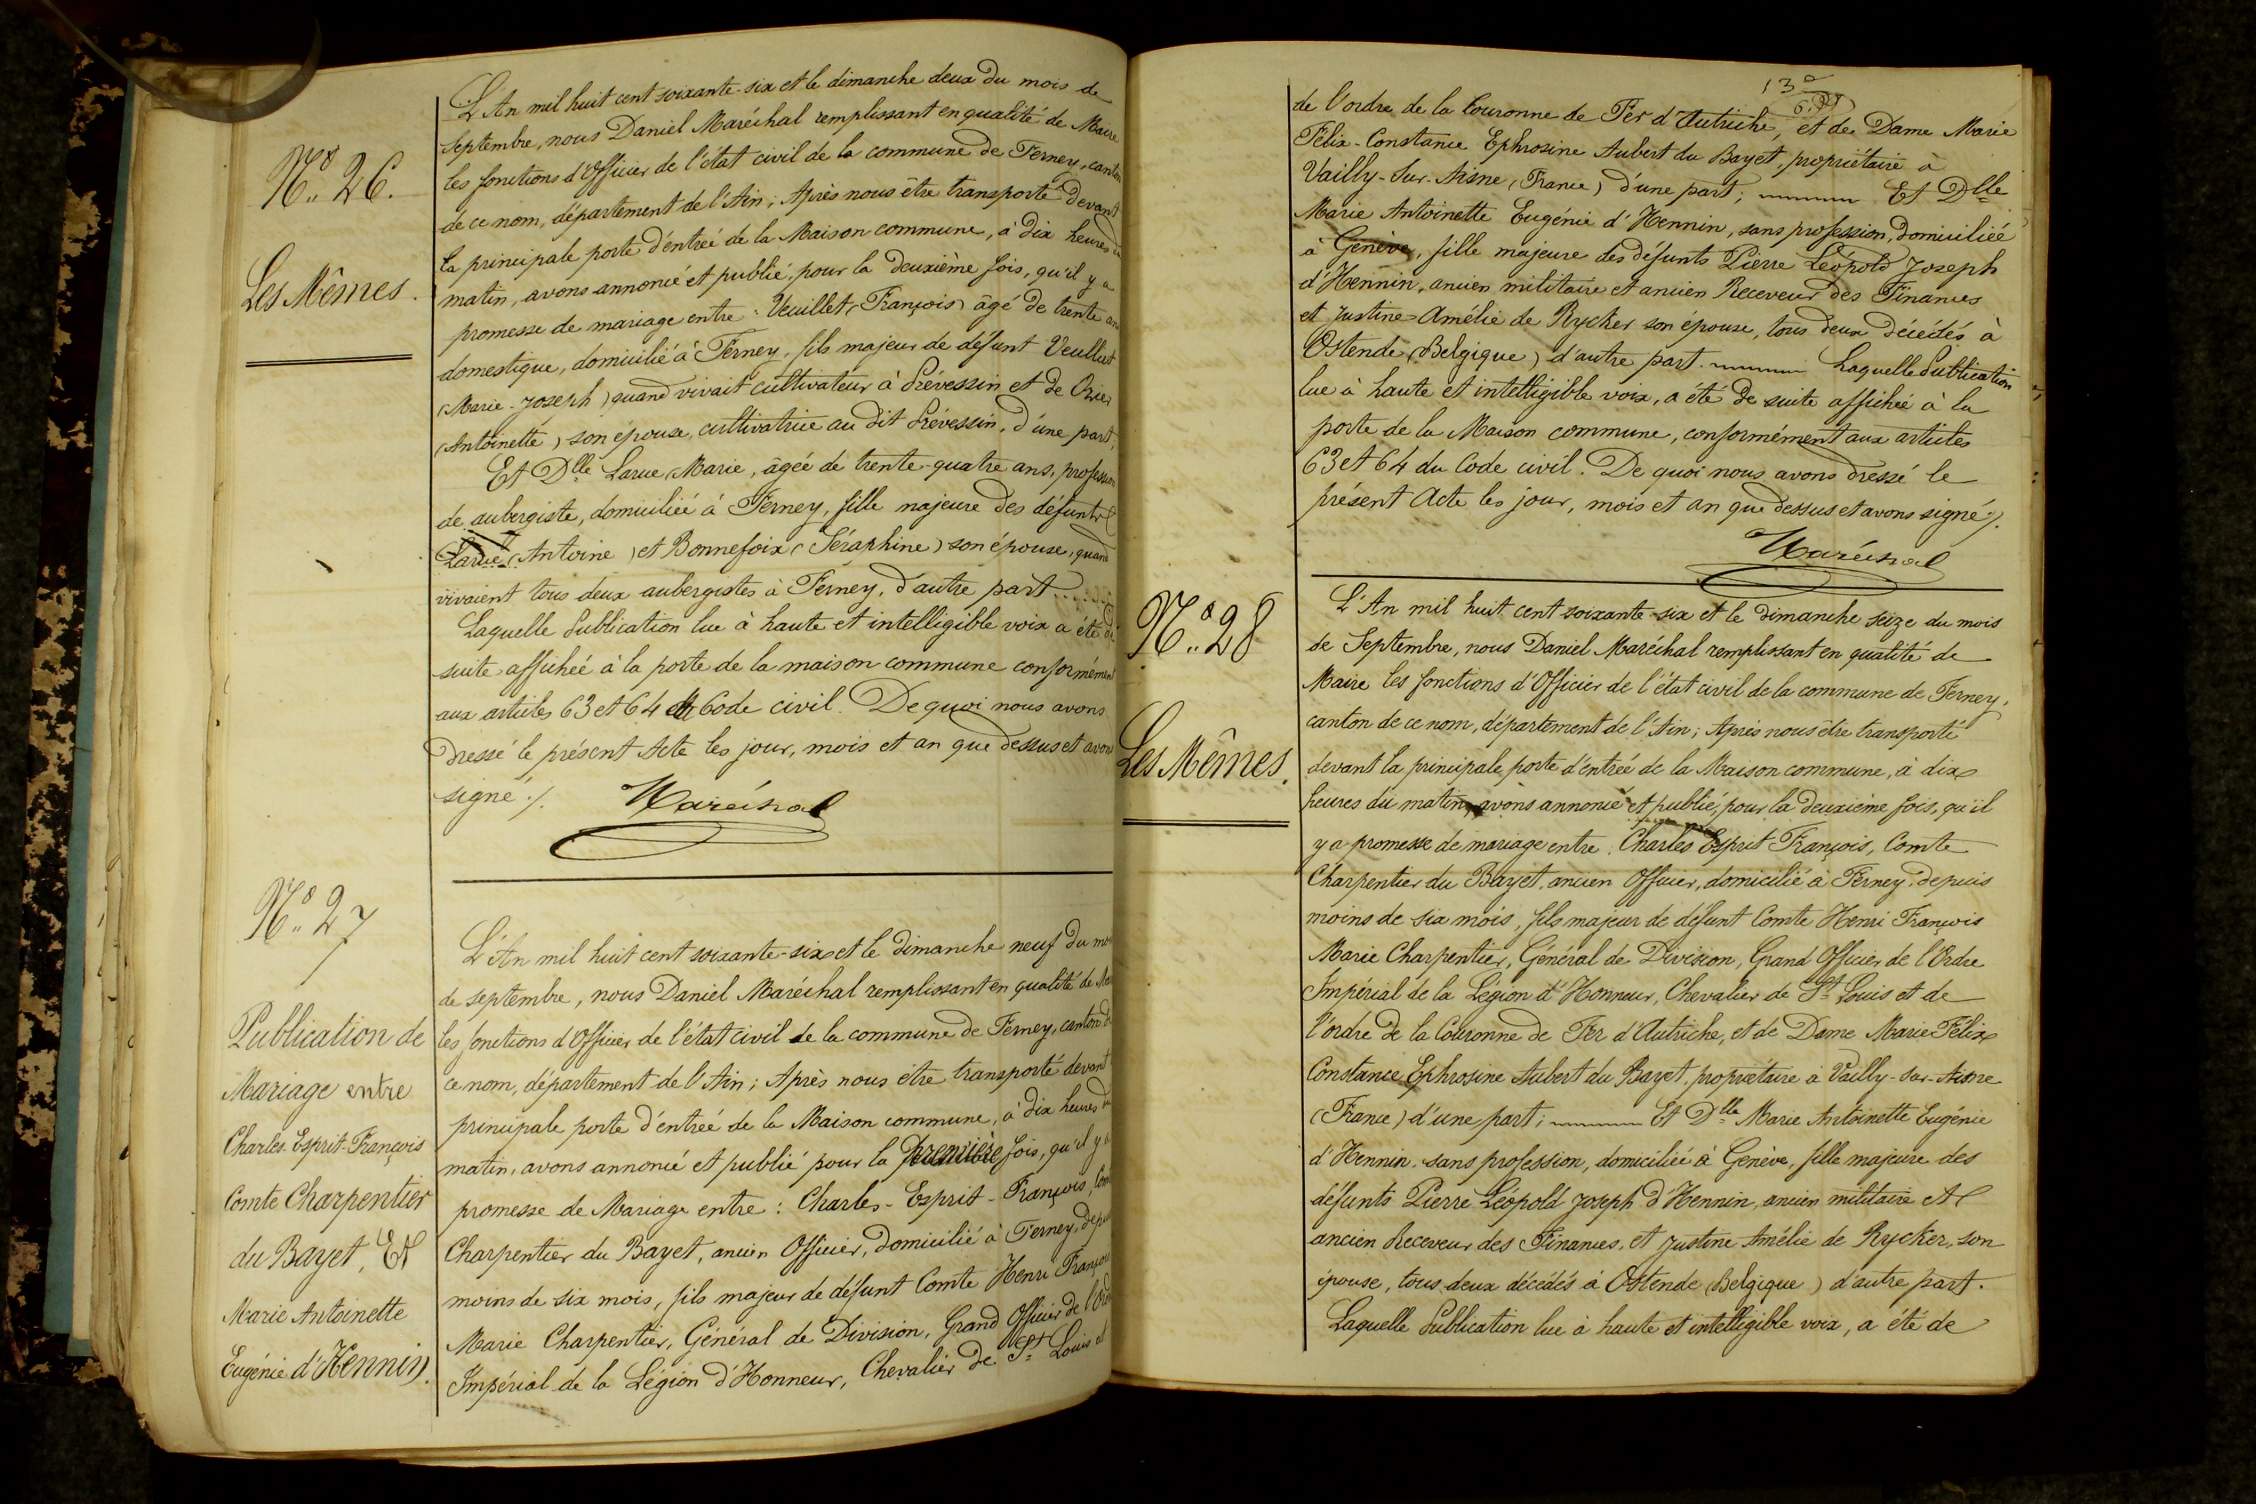 N° 26.
Les Mêmes.
L'An mil huit cent soixante-six et le dimanche deux du mois de
septembre, nous Daniel Maréchal remplissant en qualité de Maire
les fonctions d'Officier de l'état civil de la commune de Ferney, canton
de ce nom, département de l'Ain; Après nous être transporté devant
la principale porte d'entrée de la Maison commune, à dix heures du
matin, avons annoncé et publié, pour la deuxième fois, qu'il y a
promesse de mariage entre: Veuillet (François) âgé de trente ans
domestique, domicilié à Ferney, fils majeur de défunt Veuillet
(Marie-Joseph) quand vivait cultivateur à Prévessin et de
(Antoinette) son épouse, cultivatrice au dit Prévessin, d'une part,
Et Dlle Larue (Marie, âgée de trente-quatre ans, profession
de aubergiste, domiciliée à Ferney, fille majeure des défunts
Larue (Antoine) et Bonnefoix (Séraphine) son épouse, quand
vivaient tous deux aubergistes à Ferney, d'autre part.......
Laquelle Publication lue à haute et intelligible voix a été de
suite affichée à la porte de la maison commune conformément
aux articles 63 et 64 du Code civil. De quoi nous avons
dressé le présent Acte les jour, mois et an que dessus et avons
signé ./.
Maréchal
N° 27
Publication de
Mariage entre
Charles-Esprit-François
Comte Charpentier
du Bayet, Et
Marie Antoinette
Eugénie d'Hennin.
L'An mil huit cent soixante-six et le dimanche neuf du mois
de septembre, nous Daniel Maréchal remplissant en qualité de Maire
les fonctions d'Officier de l'état civil de la commune de Ferney, canton de
ce nom, département de l'Ain; Après nous être transporté devant
principale porte d'entrée de la Maison commune, à dix heures du
matin, avons annoncé et publié pour la première fois, qu'il y a
promesse de Mariage entre: Charles-Esprit-François, Comte
Charpentier du Bayet, ancien Officier, domicilié à Ferney, depuis
moins de six mois, fils majeur de défunt Comte Henri François
Marie Charpentier, Général de Division, Grand Officier de l'Ordre
Impérial de la Légion d'Honneur, Chevalier de St Louis et
13e
de l'ordre de la Couronne de Fer d'Autriche, et de Dame Marie
Félix-Constance Ephrosine Aubert du Bayet, propriétaire à
Vailly-Sur-Aisne, (France) d'une part; Et Dlle
Marie Antoinette Eugénie d'Hennin, sans profession, domiciliée
à Genève, fille majeure des défunts Pierre Léopold Joseph
d'Hennin, ancien militaire et ancien Receveur des Finances
et Justine-Amélie de Rycker son épouse, tous deux décédés à
Ostende (Belgique) d'autre part. Laquelle Publication
lue à haute et intelligible voix, a été de suite affichée à la
porte de la Maison commune, conformément aux articles
63 et 64 du Code civil. De quoi nous avons dressé le
présent Acte les jour, mois et an que dessus et avons signé ./.
Maréchal
N° 28
Les Mêmes.
L'An mil huit cent soixante-six et le dimanche seize du mois
de Septembre, nous Daniel Maréchal remplissant en qualité de
Maire les fonctions d'Officier de l'état civil de la commune de Ferney,
canton de ce nom, département de l'Ain; Après nous être transporté
devant la principale porte d'entrée de la Maison commune, à dix
heures du matin, avons annoncé et publié, pour la deuxième fois, qu'il
y a promesse de mariage entre: Charles Esprit François, Comte
Charpentier du Bayet, ancien Officier, domicilié à Ferney, depuis
moins de six mois, fils majeur de défunt Comte Henri François
Marie Charpentier, Général de Division, Grand Officier de l'Ordre
Impérial de la Légion d'Honneur, Chevalier de St Louis et de
l'ordre de la Couronne de Fer d'Autriche, et de Dame Marie Félix
Constance Ephrosine Aubert du Bayet, propriétaire à Vailly-sur-Aisne
(France) d'une part; Et Dlle Marie Antoinette Eugénie
d'Hennin, sans profession, domiciliée à Genève, fille majeure des
défunts Pierre Léopold Joseph d'Hennin, ancien militaire et
ancien Receveur des Finances, et Justine Amélie de Rycker, son
épouse, tous deux décédés à Ostende (Belgique) d'autre part.
Laquelle Publication lue à haute et intelligible voix, a été de